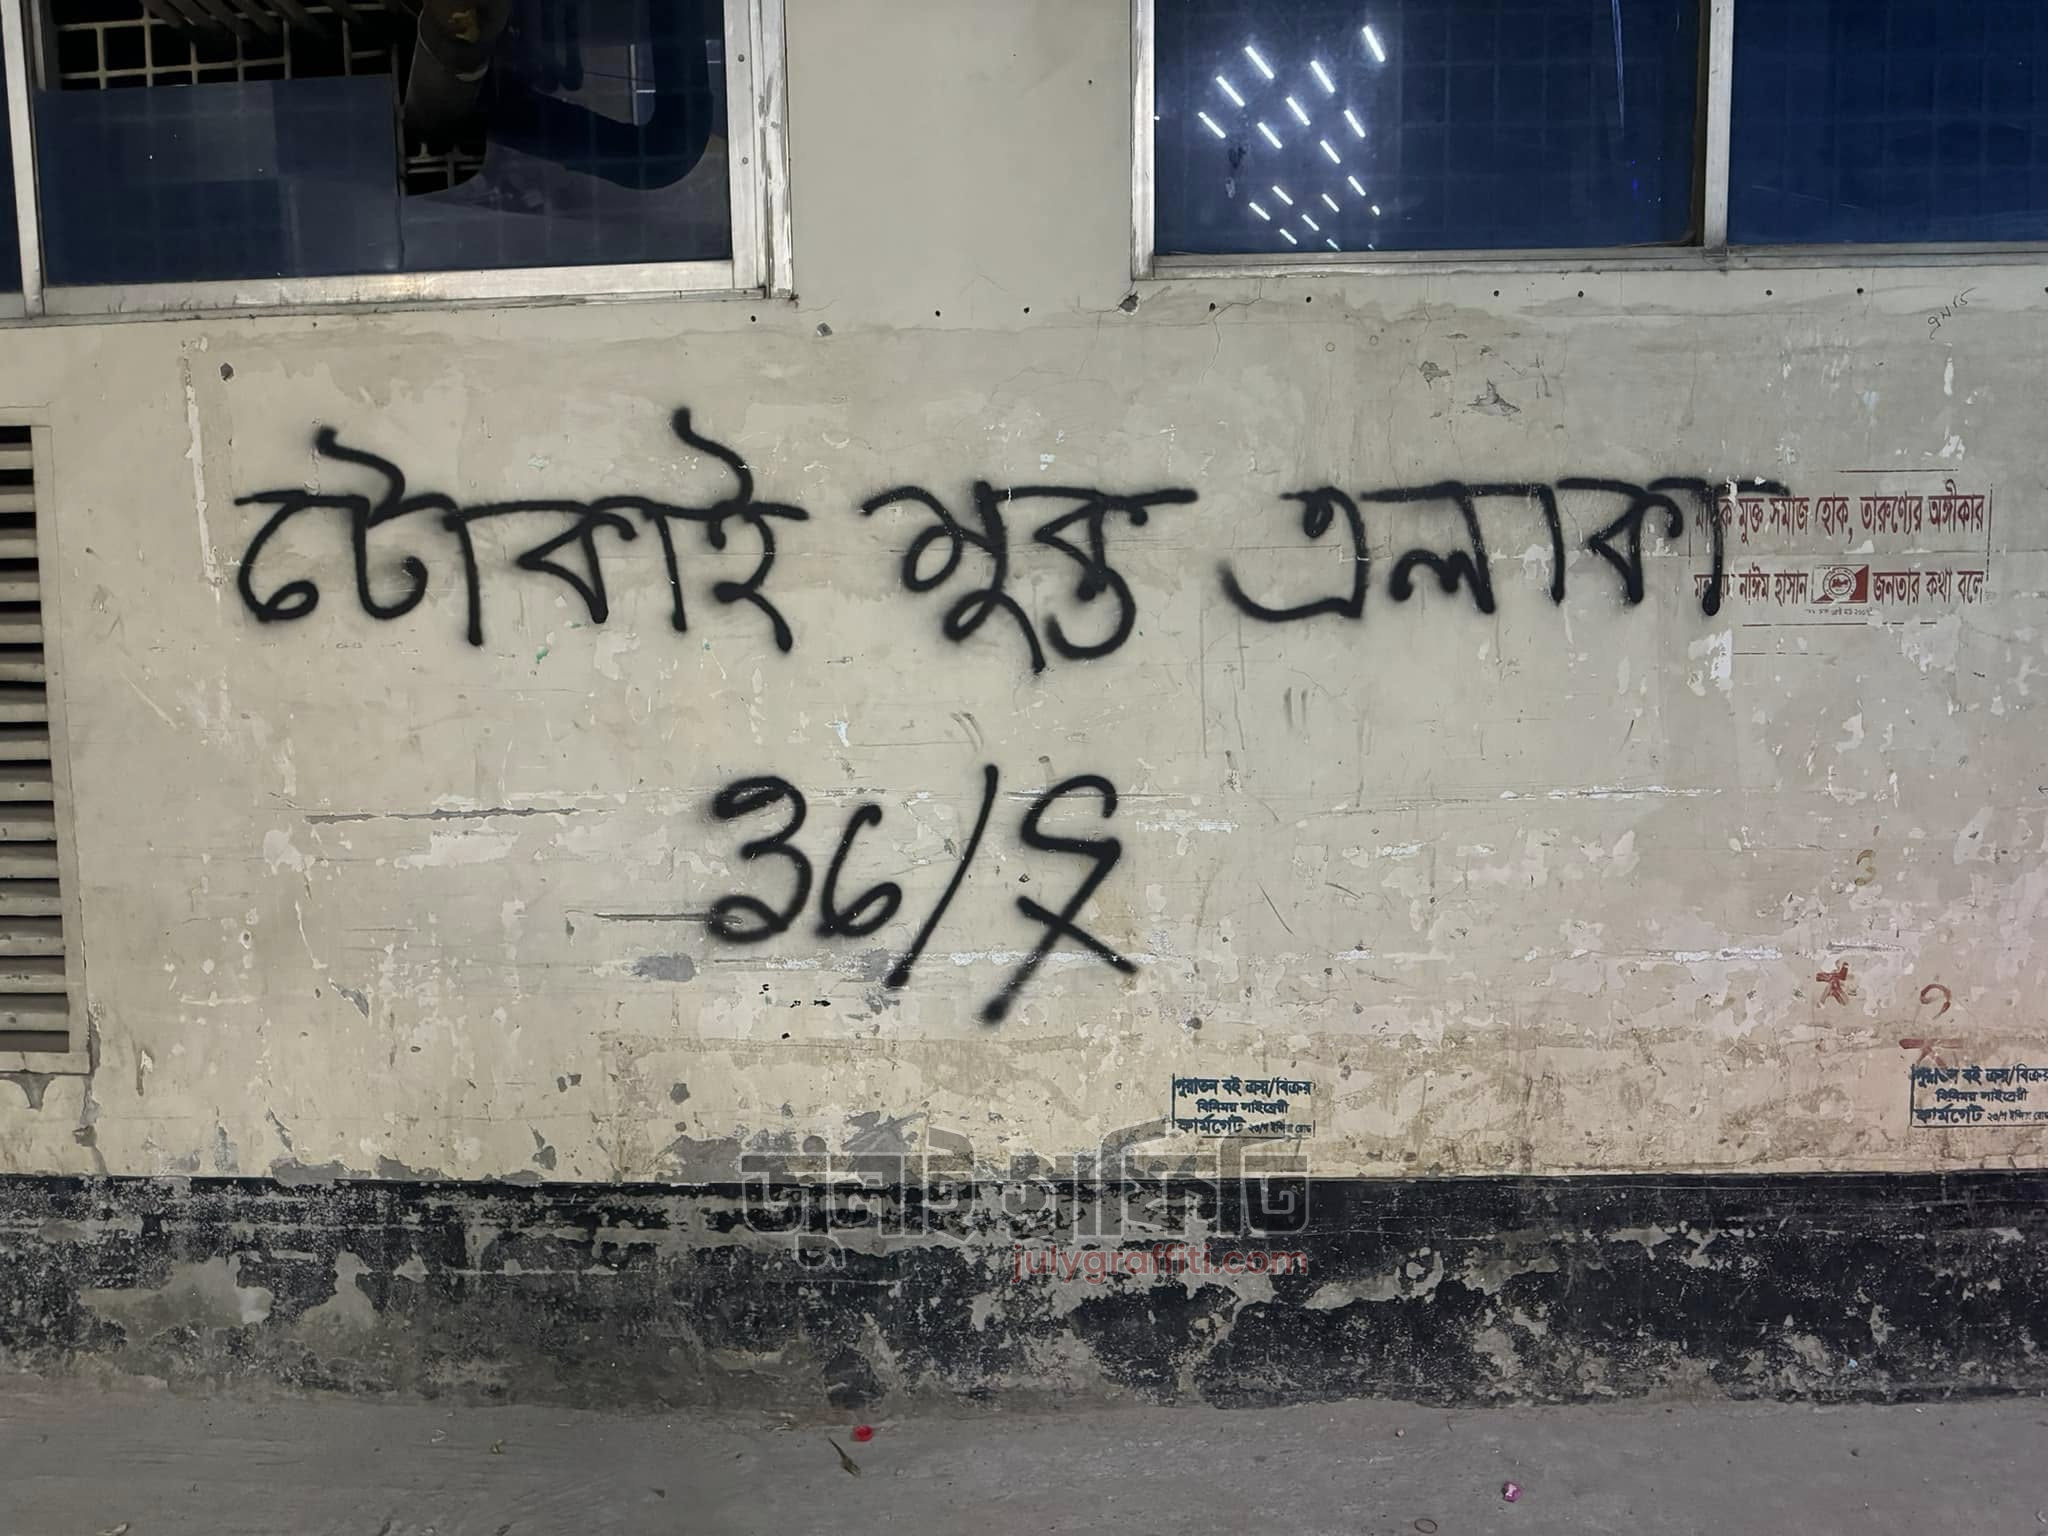 টোকাই মুক্ত এলাকা
৩৬/
মাদক মুক্ত সমাজ হোক, তারুণ্যের অঙ্গীকার
নাঈম হাসান জনতার কথা বলে
পুরাতন বই ক্রয়/বিক্রয়
বিনিময় লাইব্রেরী
ফার্মগেট
পুরাতন বই ক্রয়/বিক্রয়
বিনিময় লাইব্রেরী
ফার্মগেট
জুলাই গ্রাফিতি
julygraffiti.com